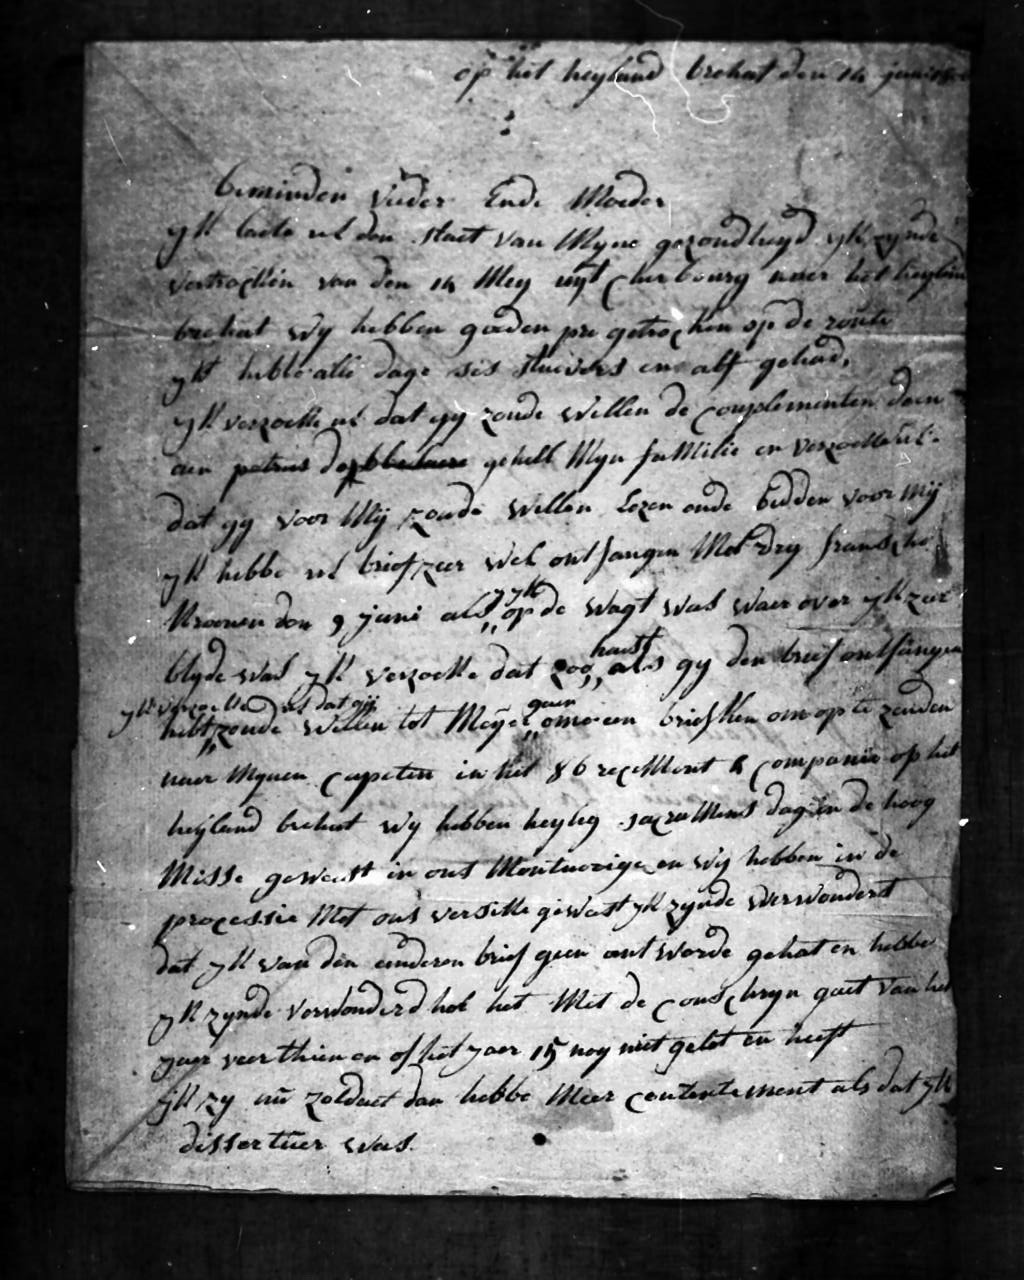 op het heyland brehat den 14 juni
beminden vader Ende Moeder
yk laete ul den staet van Myne gezondheyd yk zynde
vertrocken van den 14 Mey uyt cherbourg naer het heyland
brehat wy hebben goeden pre getrocken op de route
yk hebbe alle dage ses stuivers en alf gehad,
yk verzoeke ul dat gy zoude willen de complementen doen
aen petrus geheel Myn faMilie en verzoeke ul
dat gy voor Mij zoude willen Lezen ende bidden voor mij
yk hebbe ul brief zeer wel ontfangen Met dry fransche
kroonen den 9 juni als yk op de wagt was waer over yk zeer
blyde was yk verzoeke dat zoo haest als gy den brief ontfangen
yk verzoeke ul dat gij
hebt zoude willen tot geen om een briefken om op te zenden
naer Mynen capeten in het 86 regeMent 4 companie op het
heyland brehat wy hebben heyleg sacraMens dag in de hoog
Misse geweest in ons Montueringe en wy hebben in de
processie Met ons versille geweest yk zynde verwondert
dat yk van den anderen brief geen antworde gehat en hebbe
yk zynde verwonderd hoe het Met de conschryn gaet van het
jaer veerthien en of het jaer 15 nog niet gelot en heeft
yk zy nu zoldaet dan hebbe Meer contentement als dat yk
disserteer was.